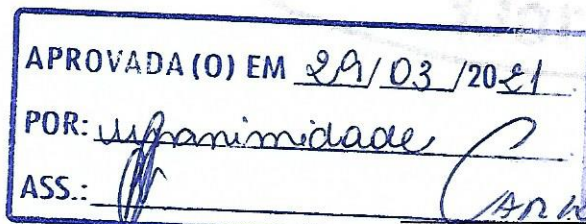 APROVADA (O) EM 29/03/2021
POR: unanimidade
ASS.: